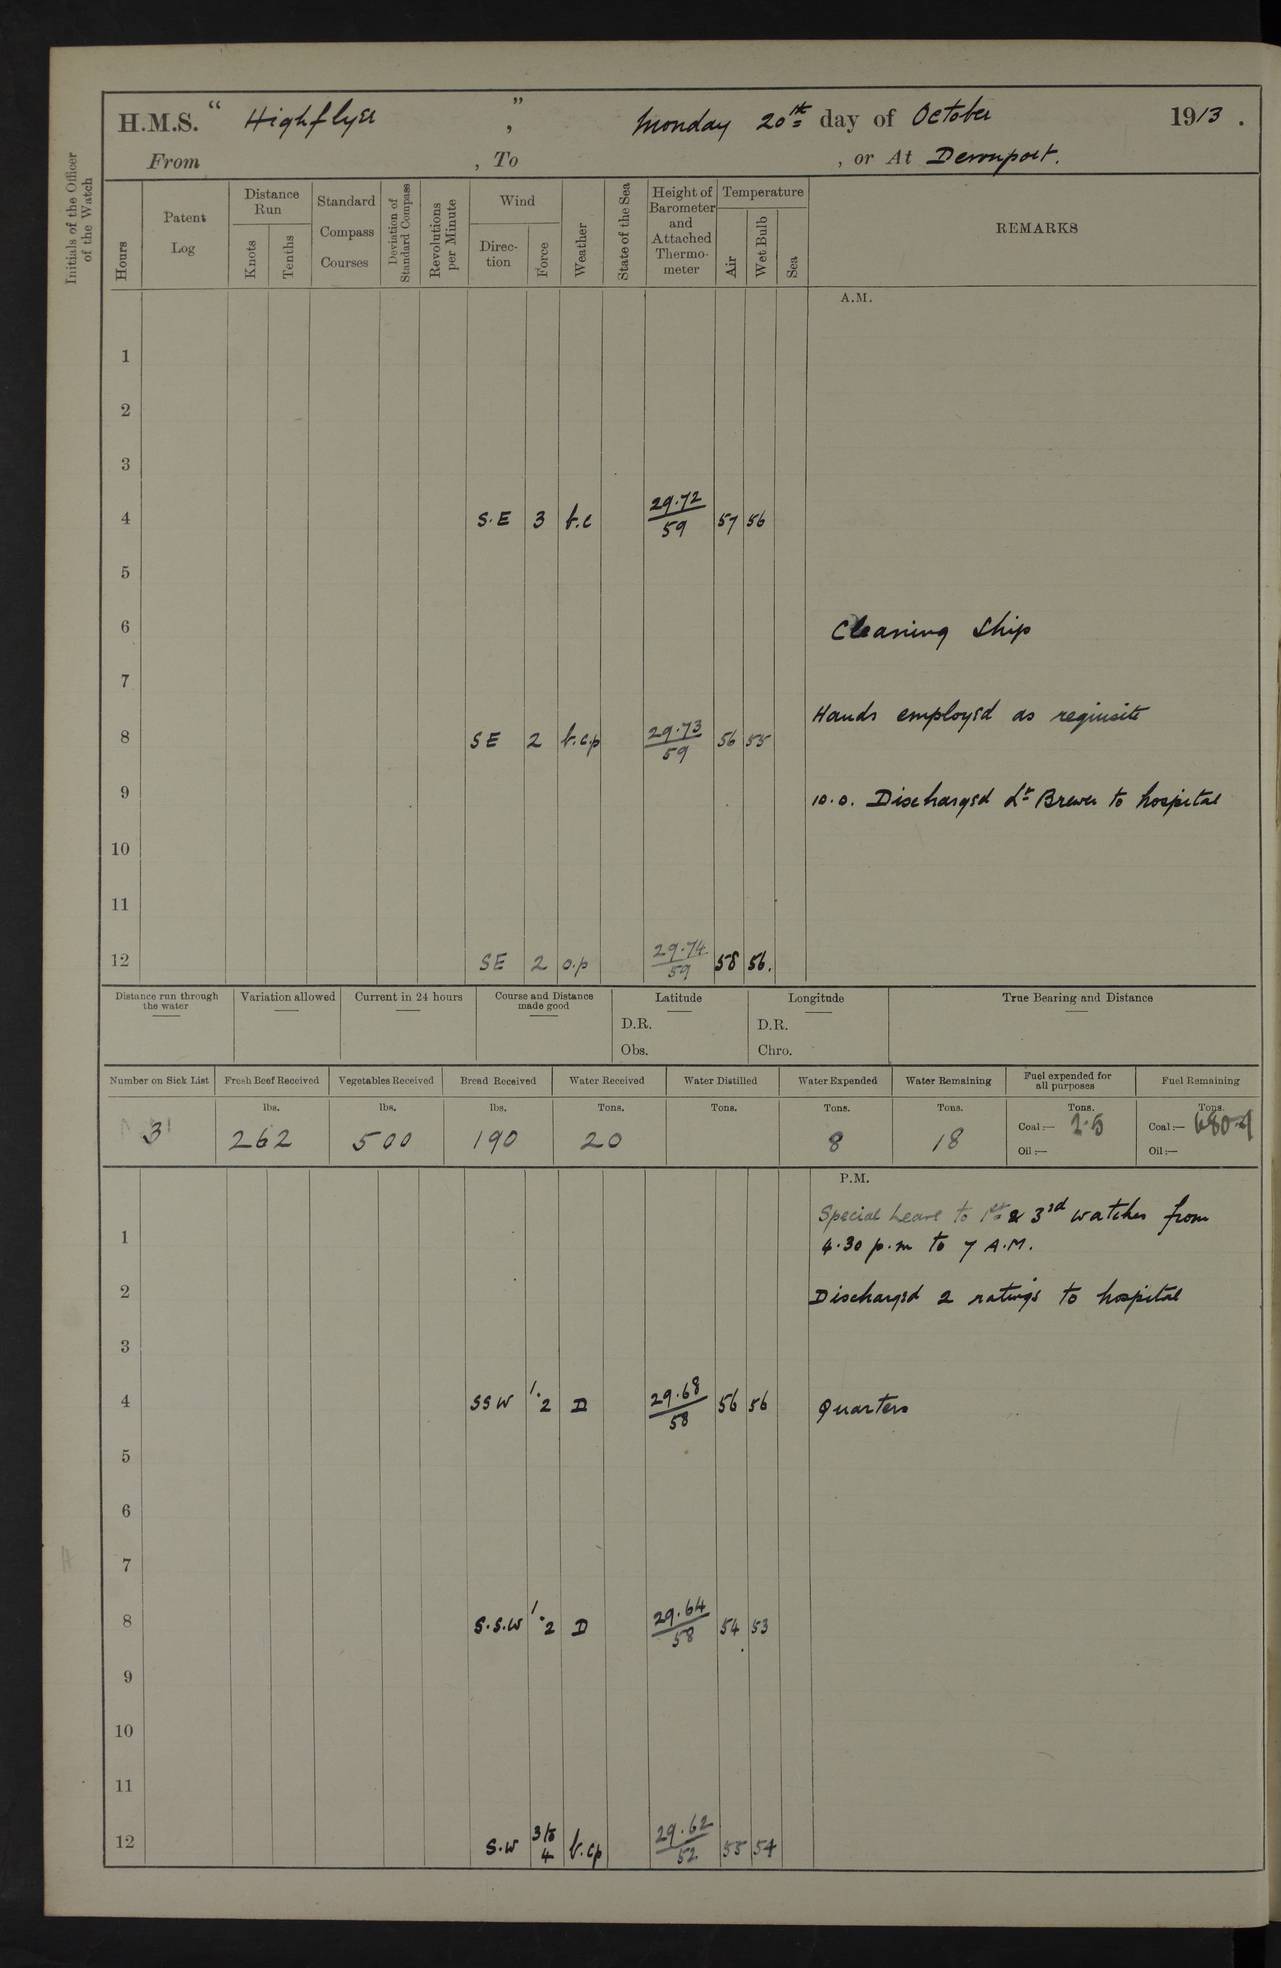 H.M.S. " Highflyer " , Monday 20th day of October 1913 .
From , To , or At Devonport.
Initials of the Officer of the Watch
Hours
Patent Log
Distance Run
Knots
Tenths
Standard Compass Courses
Deviation of Standard Compass
Revolutions per Minute
Wind
Direc-tion
Force
Weather
State of the Sea
Height of Barometer and Attached Thermo-meter
Temperature
Air
Wet Bulb
Sea
REMARKS
A.M.
1
2
3
4 S.E 3 b.c 29.72/59 57 56
5
6 Cleaning Ship
7
Hands employed as requisite
8 SE 2 b.c.p 29.73/59 56 55
9 10.0. Discharged Lt Brewer to hospital
10
11
12 SE 2 o.p 29.74/59 58 56.
Distance run through the water
Variation allowed
Current in 24 hours
Course and Distance made good
Latitude
D.R.
Obs.
Longitude
D.R.
Chro.
True Bearing and Distance
Number on Sick List Fresh Beef Received Vegetables Received Bread Received Water Received Water Distilled Water Expended Water Remaining Fuel expended for all purposes Fuel Remaining
lbs. lbs. lbs. Tons. Tons. Tons. Tons. Tons. Tons.
3 262 500 190 20 8 18 Coal:— 2.5 Coal:—
Oil:— Oil:—
P.M.
Special Leave to 1st & 3rd watches from
1 4.30 p.m to 7 A.M.
2 Discharged 2 ratings to hospital
3
4 SSW 1.2 D 29.68/58 56 56 Quarters
5
6
7
8 S.S.W 1.2 D 29.64/58 54 53
9
10
11
12 S.W 3 to 4 b.cp 29.62/52 55 54